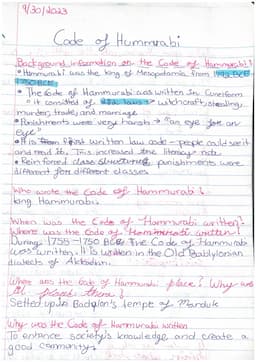 9/30/2023
Code of Hammurabi
Background information on the Code of Hammurabi:
• Hammurabi was the king of Mesopotamia from 1792 BCE
1750 BCE
• The Code of Hammurabi was written in Cuneiform
• it consisted of 282 laws → witchcraft, stealing,
murder, trade, and marriage
• Punishments were very harsh → "an eye for an
eye"
• It is first written law code - people could see it
and read it. This increased the literacy rate
• Reinforced class structure, punishments were
different for different classes
Who wrote the Code of Hammurabi?
King Hammurabi
When was the Code of Hammurabi written?
Where was the Code of Hammurabi written?
During 1755-1750 BCE The Code of Hammurabi
was written. It is written in the Old Babylonian
dialects of Akkadian.
Where was the Code of Hammurabi place? Why was
it placed there?
Setted up in Babylon's temple of Marduk
Why was the Code of Hammurabi written
To enhance society's knowledge and create a
good community.